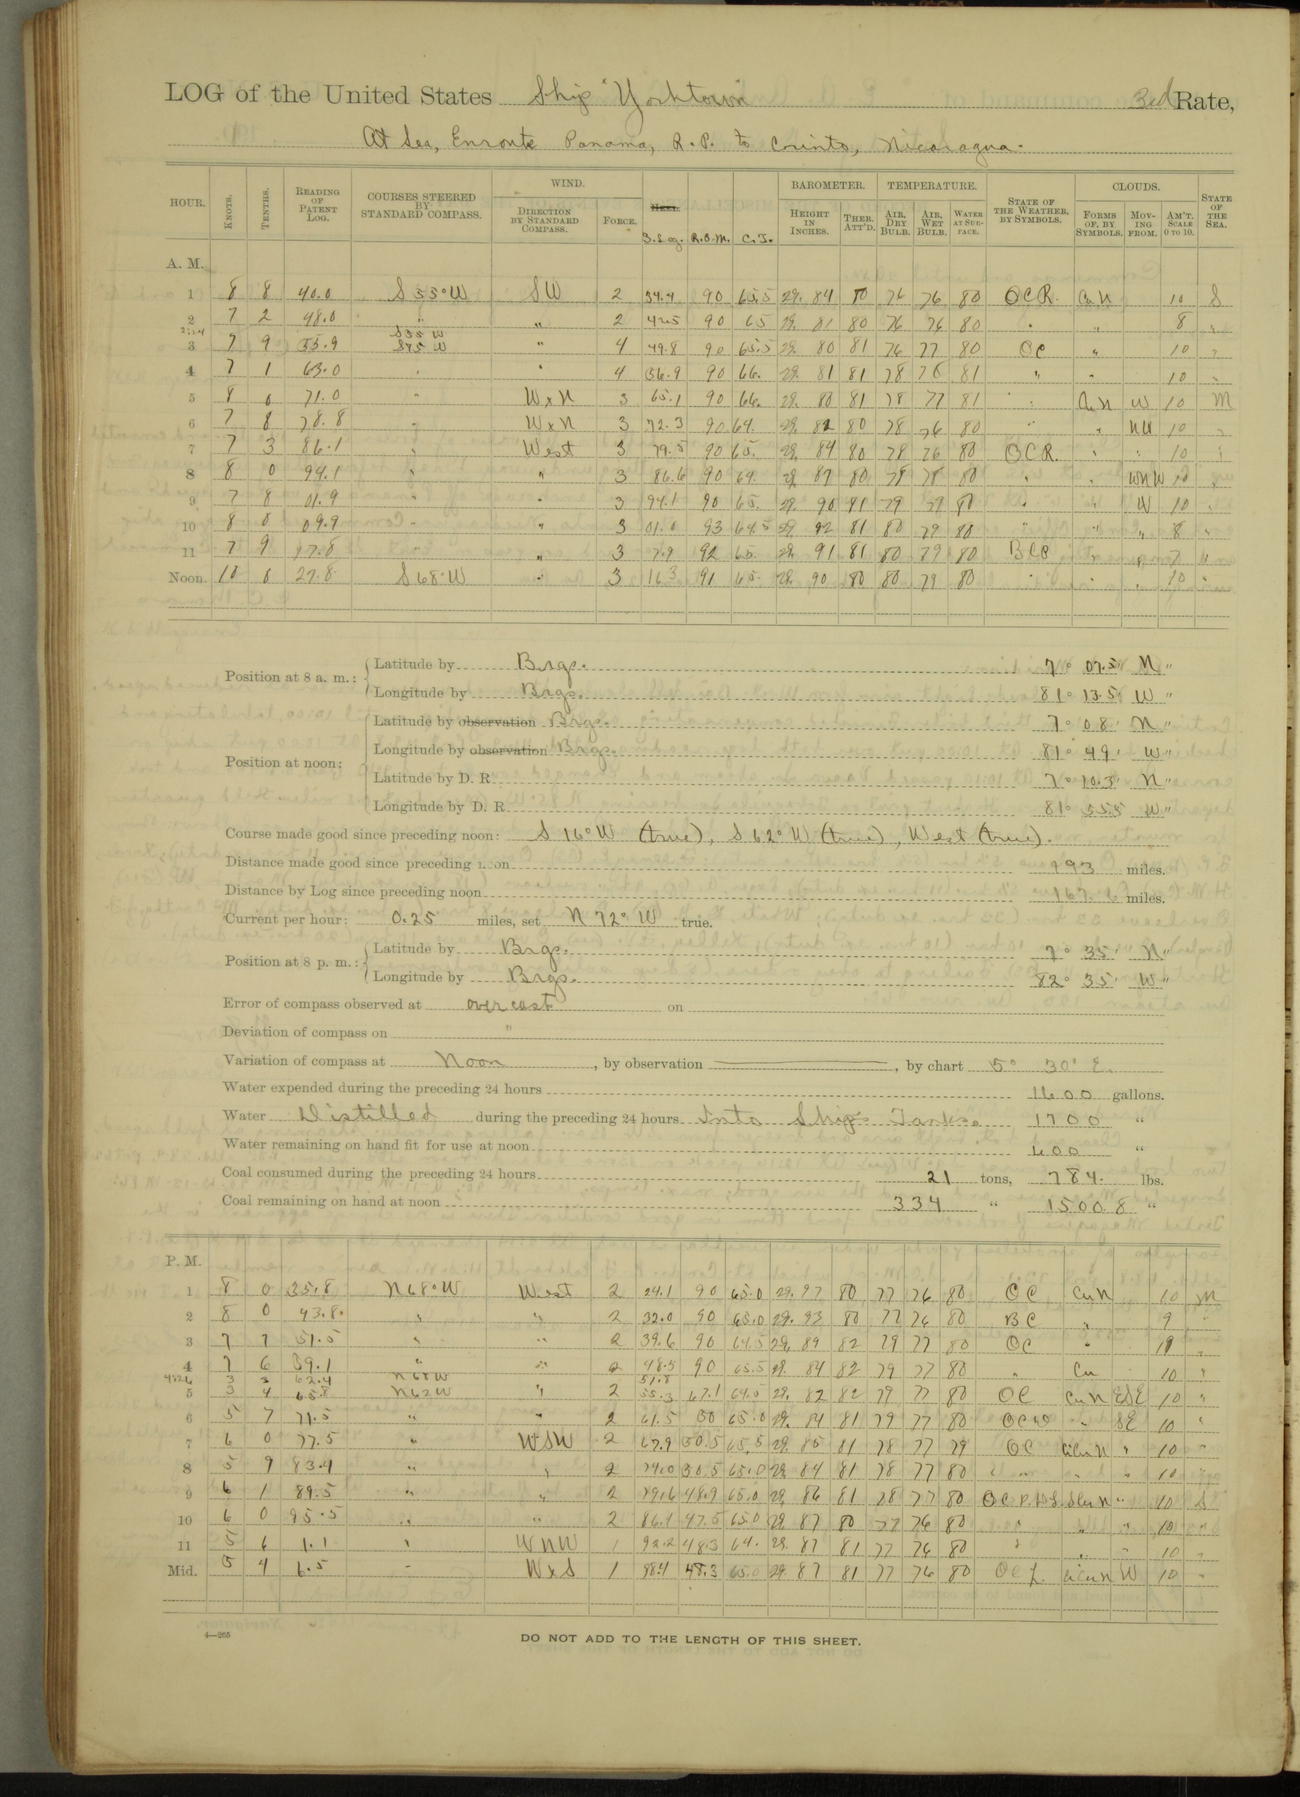 LOG of the United States Ship "Yorktown" 3rd Rate,
At Sea, Enroute Panama, R.P. to Corinto, Nicaragua.
HOUR. KNOTS. TENTHS. READING OF PATENT LOG. COURSES STEERED BY STANDARD COMPASS. WIND. DIRECTION BY STANDARD COMPASS. FORCE. S.Log. R.P.M. C.T. BAROMETER. HEIGHT IN INCHES. THER. ATT'D. TEMPERATURE. AIR, DRY BULB. AIR, WET BULB. WATER AT SURFACE. STATE OF THE WEATHER, BY SYMBOLS. CLOUDS. FORMS OF, BY SYMBOLS. MOVING FROM. AM'T. SCALE 0 TO 10. STATE OF THE SEA.
A. M.
1 8 8 40.0 S 55° W SW 2 34.4 90 65.5 29. 84 80 76 76 80 OCR. CuN 10 S
2 7 2 48.0 " " 2 42.5 90 65 29. 81 80 76 76 80 " " 8 "
S 55 W
3 7 9 55.9 S 75 W " 4 49.8 90 65.5 29. 80 81 76 77 80 OC " 10 "
4 7 1 63.0 " " 4 56.9 90 66. 29. 81 81 78 76 81 " " 10 "
5 8 0 71.0 " WxN 3 65.1 90 66. 29. 80 81 78 77 81 " CuN W 10 M
6 7 8 78.8 WxN 3 72.3 90 64. 29. 82 80 78 76 80 " " NW 10 "
7 7 3 86.1 " West 3 79.5 90 65. 29. 84 80 78 76 80 OCR. " " 10 "
8 8 0 94.1 " " 3 86.6 90 64. 29. 87 80 78 78 80 " " WNW 10 "
9 7 8 01.9 " " 3 94.1 90 65. 29. 90 81 79 79 80 " " W 10 "
10 8 0 09.9 " " 3 01.0 93 64.5 29. 92 81 80 79 80 " " " 8 "
11 7 9 17.8 " " 3 7.9 92 65. 29. 91 81 80 79 80 BCP " " 7 "
Noon. 10 0 27.8 S 68° W " 3 16.3 91 65. 29. 90 80 80 79 80 " " " 10 "
Position at 8 a. m.: Latitude by Brgs. 7° 07.5' N "
Longitude by Brgs. 81° 13.5' W "
Position at noon: Latitude by observation Brgs. 7° 08' N "
Longitude by observation Brgs. 81° 49' W "
Latitude by D. R. 7° 10.3' N "
Longitude by D. R. 81° 55.5 W "
Course made good since preceding noon: S 16° W (true), S 62° W (true), West (true).
Distance made good since preceding noon 193 miles.
Distance by Log since preceding noon 167.6 miles.
Current per hour: 0.25 miles, set N 72° W true.
Position at 8 p. m.: Latitude by Brgs. 7° 35' N "
Longitude by Brgs. 82° 35' W "
Error of compass observed at overcast on
Deviation of compass on "
Variation of compass at Noon, by observation , by chart 5° 30' E.
Water expended during the preceding 24 hours 1600 gallons.
Water Distilled during the preceding 24 hours Into Ship's Tanks 1700 "
Water remaining on hand fit for use at noon 600 "
Coal consumed during the preceding 24 hours 21 tons, 784. lbs.
Coal remaining on hand at noon 334 " 1500.8 "
P. M.
1 8 0 35.8 N 68° W West 2 24.1 90 65.0 29. 97 80 77 76 80 OC CuN 10 M
2 8 0 43.8. " " 2 32.0 90 65.0 29. 93 80 77 76 80 BC " 9 "
3 7 7 51.5 " " 2 39.6 90 64.5 29. 89 82 79 77 80 OC " "
4 7 6 59.1 " " 2 48.5 90 65.5 29. 84 82 79 77 80 " Cu 10 "
3 3 62.4 N 68 W 51.8
5 3 4 65.8 N 62 W " 2 55.3 67.1 64.5 29. 82 82 79 77 80 OC CuN ESE 10 "
6 5 7 71.5 " " 2 61.5 50 65.0 29. 84 81 79 77 80 " SE 10 "
7 6 0 77.5 " WSW 2 67.9 50.5 65.5 29. 85 81 78 77 79 OC CiCuN " 10 "
8 5 9 83.4 " " 2 74.0 50.5 65.0 29. 84 81 78 77 80 " " " 10 "
9 6 1 89.5 " " 2 79.6 48.9 65.0 29. 86 81 78 77 80 SCuN " 10 S
10 6 0 95.5 " " 2 86.4 47.5 65.0 29. 87 80 77 76 80 " " " 10 "
11 5 6 1.1 " WNW 1 92.2 48.3 64. 29. 87 81 77 76 80 " " " 10 "
Mid. 5 4 6.5 " WxS 1 98.4 48.3 65.0 29. 87 81 77 76 80 OCL CiCuN W 10 "
4—265
DO NOT ADD TO THE LENGTH OF THIS SHEET.